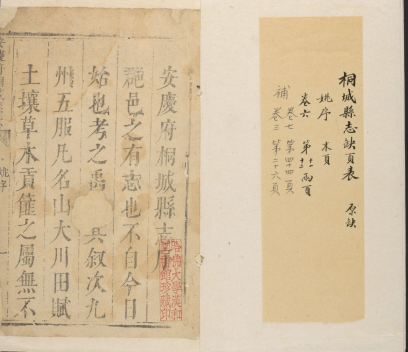 桐城縣志缺頁表 原缺
姚序 末頁
卷六 第十二兩頁
補 卷七 第四十四頁
卷三 第二十六頁
安慶府桐城縣志序
邑之有志也不自今日
始也考之禹 其叙次九
州五服凡名山大川田賦
土壤草木貢篚之屬無不
姚序